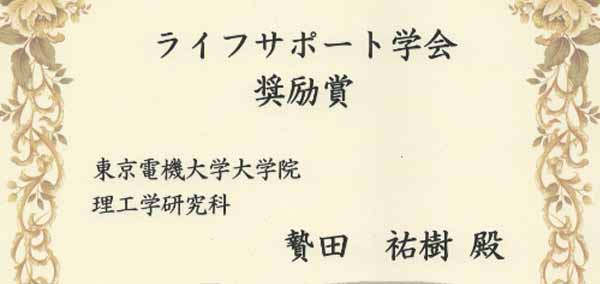 ライフサポート学会
奨励賞
東京電機大学大学院
理工学研究科
贄田　祐樹 殿